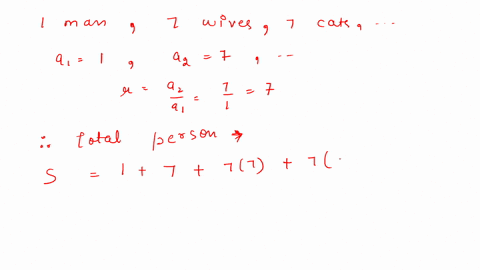 1 man, 7 wives, 7 cats, ...
a₁ = 1, a₂ = 7, ...
r = a₂/a₁ = 7/1 = 7
∴ total person →
S = 1 + 7 + 7(7) + 7(.